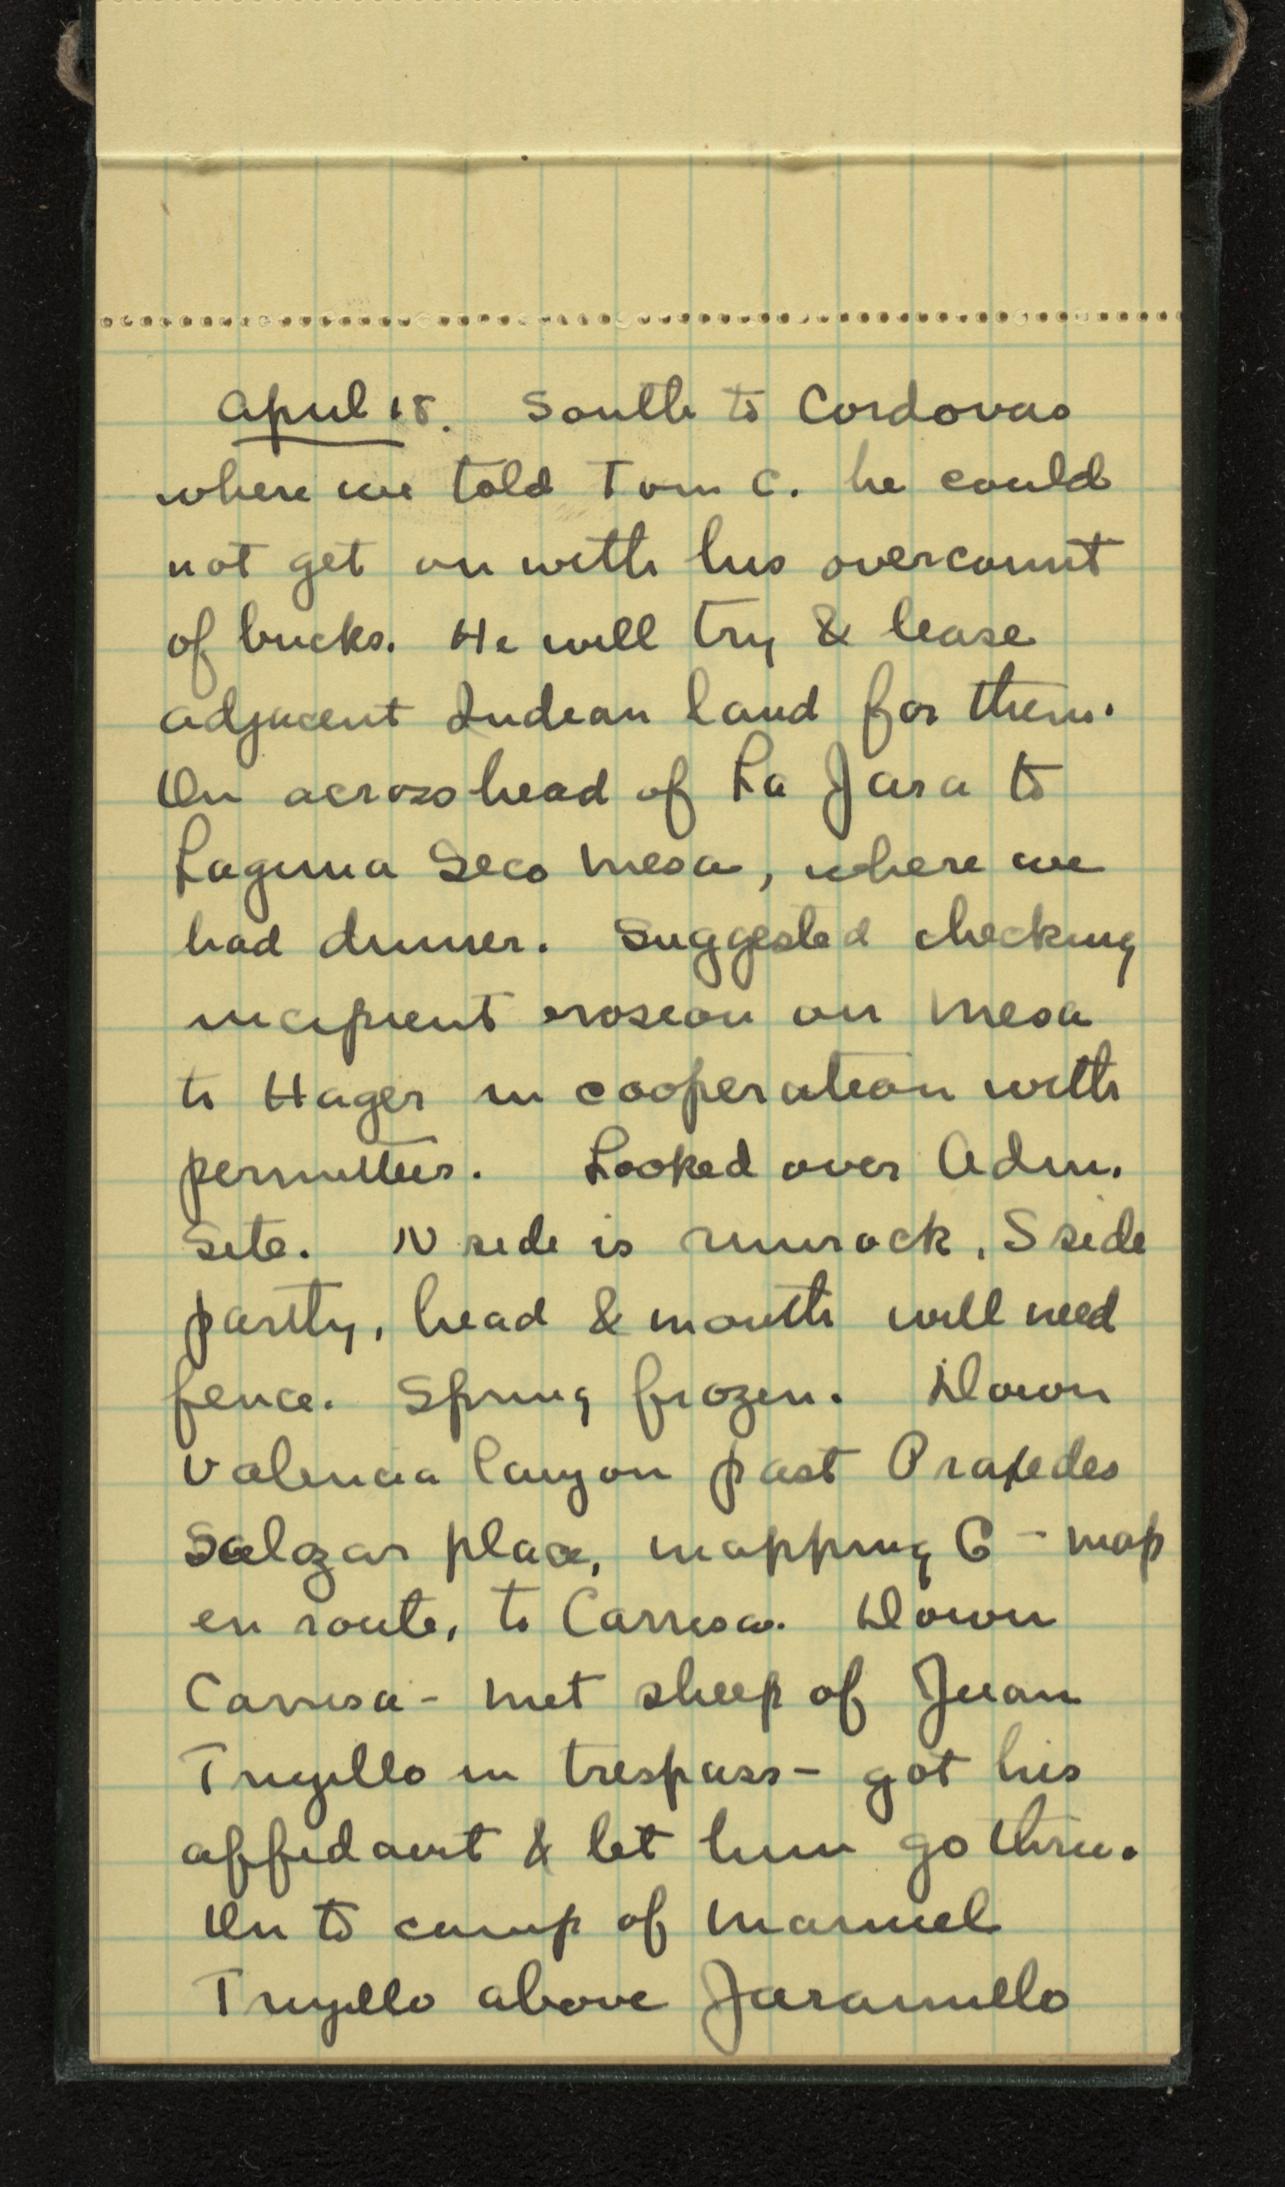 April 18. South to Cordovas
where we told Tom C. he could
not get on with his overcount
of bucks. He will try & lease
adjacent Indian land for them.
On across head of La Jara to
Laguna Seco Mesa, where we
had dinner. Suggested checking
incipient erosion on Mesa
to Hager in cooperation with
permittees. Looked over Adm.
Site. N side is rimrock, S side
partly, head & mouth will need
fence. Spring frozen. Down
Valencia Canyon past Praxedes
Salzar place, mapping G-map
en route, to Carrisa. Down
Carrisa - Met sheep of Juan
Trujillo in trespass - got his
affidavit & let him go thru.
On to camp of Manuel
Trujillo above Jaramillo